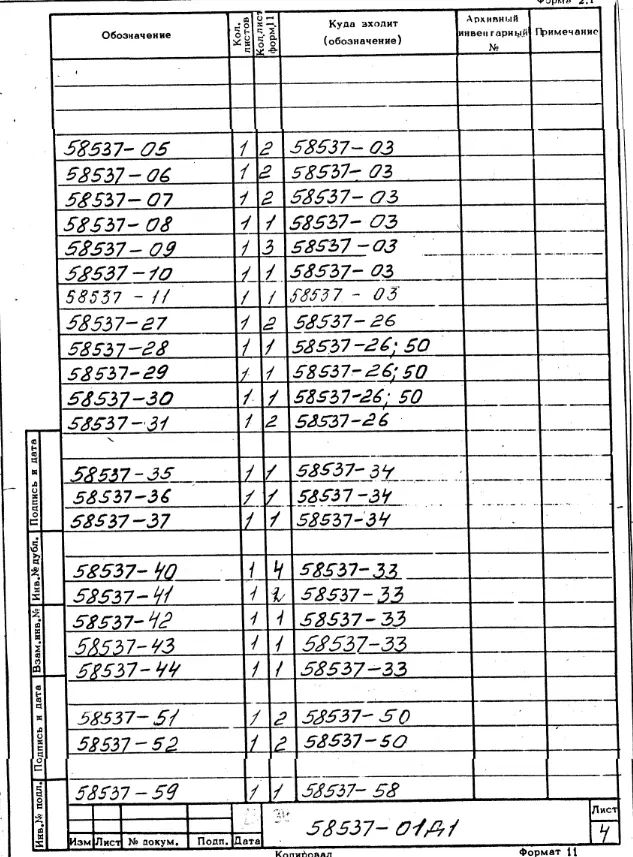 Форма 2.1
Обозначение Кол. листов Кол.лист форм.11 Куда входит (обозначение) Архивный инвентарный № Примечание
58537-05 1 2 58537-03
58537-06 1 2 58537-03
58537-07 1 2 58537-03
58537-08 1 1 58537-03
58537-09 1 3 58537-03
58537-10 1 1 58537-03
58537-11 1 1 58537-03
58537-27 1 2 58537-26
58537-28 1 1 58537-26; 50
58537-29 1 1 58537-26; 50
58537-30 1 1 58537-26; 50
58537-31 1 2 58537-26
58537-35 1 1 58537-34
58537-36 1 1 58537-34
58537-37 1 1 58537-34
58537-40 1 4 58537-33
58537-41 1 2 58537-33
58537-42 1 1 58537-33
58537-43 1 1 58537-33
58537-44 1 1 58537-33
58537-51 1 2 58537-50
58537-52 1 2 58537-50
58537-59 1 1 58537-58
Подпись и дата
Инв.№ дубл.
Взам.инв.№
Подпись и дата
Инв.№ подл.
Изм Лист № докум. Подп. Дата
58537-01Д1
Лист
4
Копировал Формат 11